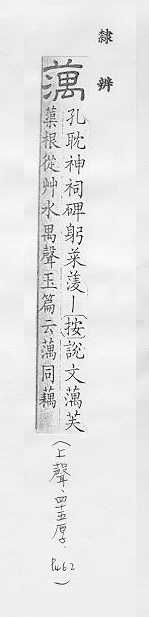 隸辨
藕
孔耽神祠碑躬菜淩｜按說文蕅芙
蕖根從艸水禺聲玉篇云蕅同藕
(上聲、四十五厚、P462)